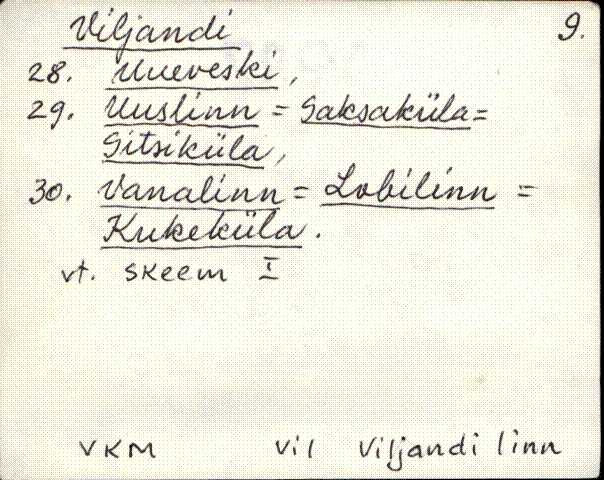 Viljandi 9.
28. Uueveski,
29. Uuslinn = Saksaküla =
Sitsiküla,
30. Vanalinn = Lobilinn =
Kukeküla.
vt. skeem I
VKM Vil Viljandi linn